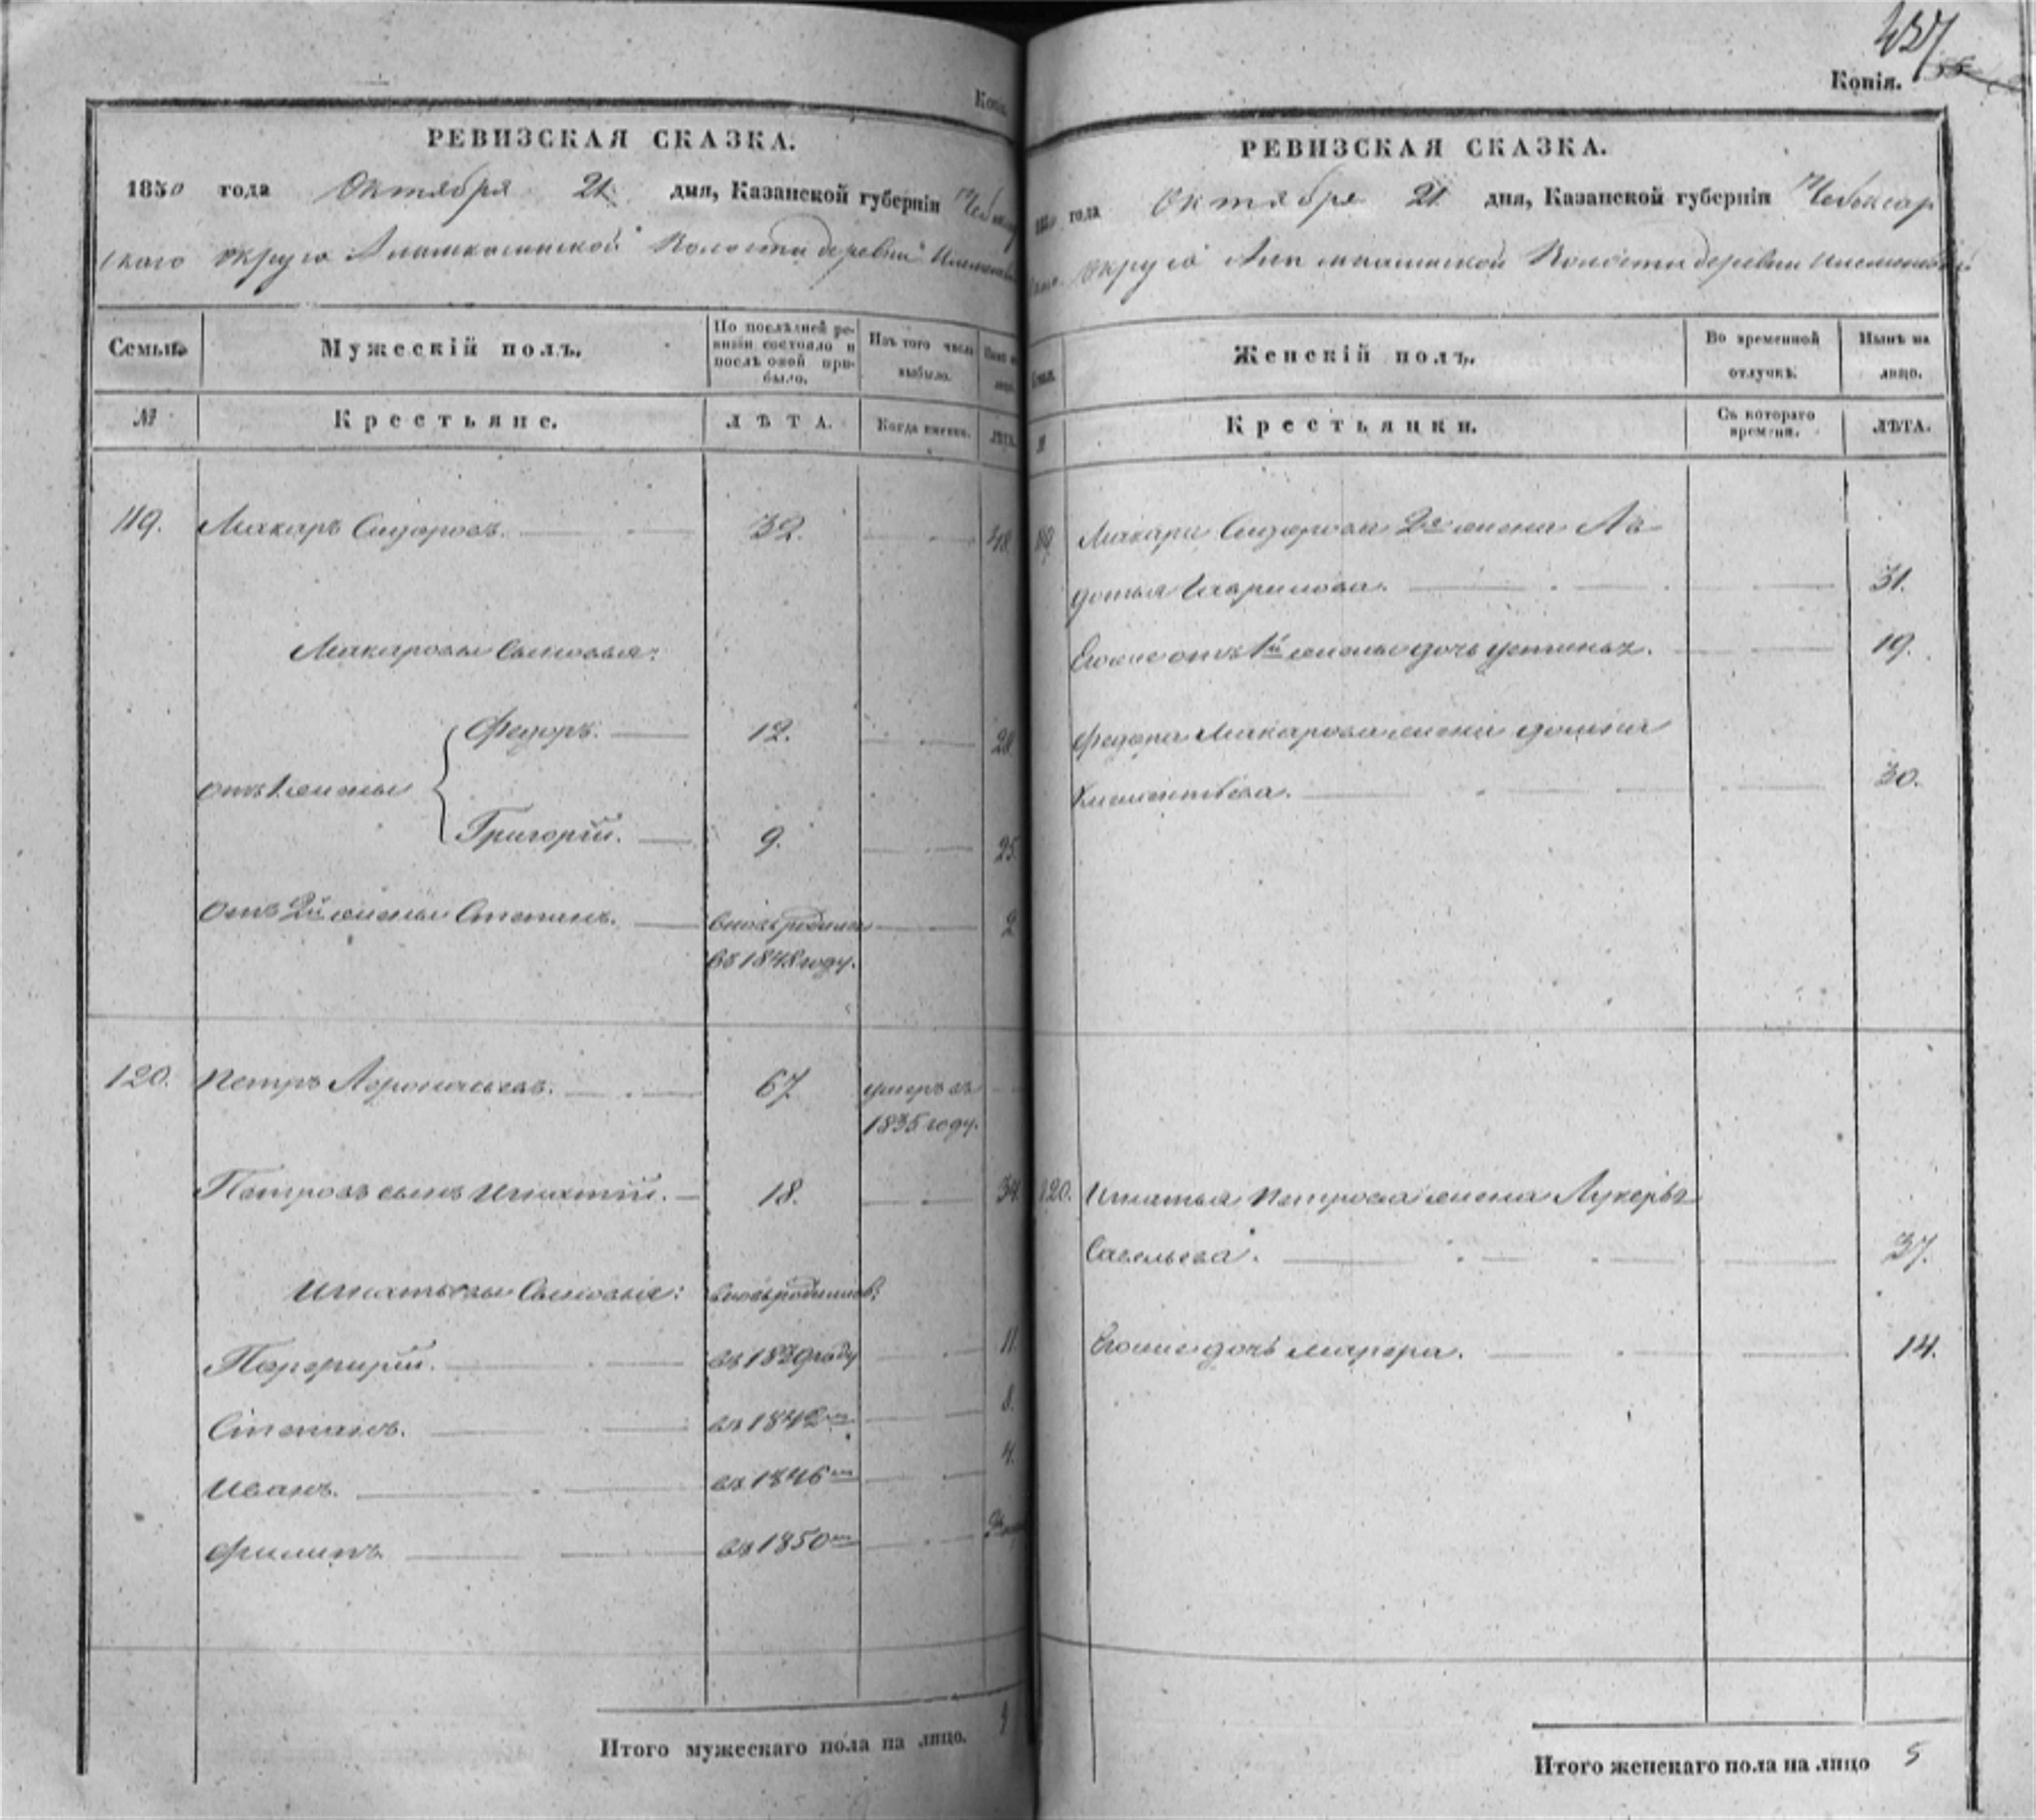 Копія.
РЕВИЗСКАЯ СКАЗКА.
1850 года Октября 21 дня, Казанской губерніи
скаго округа Волости деревни
Семьи. Мужескій полъ. По послѣдней ре-визіи состояло и послѣ оной при-было. Изъ того числа выбыло.
№ Крестьяне. ЛѢТА. Когда именно. ЛѢТА.
119. Макаръ Сидоровъ. 32. 48.
Макаровы сыновья:
Федоръ. 12. 28
отъ 1 жены
Григорій. 9. 25
Отъ 2й жены Степанъ. вновь родился 2
въ 1848 году.
120. Петръ 67 умеръ въ
1835 году.
Петровъ сынъ Игнатій. 18. 34
Игнатьевы сыновья: вновь родились:
Порфирій. въ 1839 году 11.
Степанъ. въ 1842 8.
Иванъ. въ 1846 4.
Филипъ. въ 1850
Итого мужескаго пола на лицо. 9
437
Копія.
РЕВИЗСКАЯ СКАЗКА.
года Октября 21 дня, Казанской губерніи Чебоксар
округа Волости деревни
Женскій полъ. Во временной отлучкѣ. Нынѣ на лицо.
№ Крестьянки. Съ котораго времени. ЛѢТА.
119 Макара Сидорова 2я жена Ав
дотья Гаврилова. 31.
Егоже отъ 1й жены дочь Устинья. 19.
Федора Макарова жена Домна
Климентьева. 30.
120. Игнатья Петрова жена Лукерья
Савельева. 37.
Егоже дочь Марфа. 14.
Итого женскаго пола на лицо 5